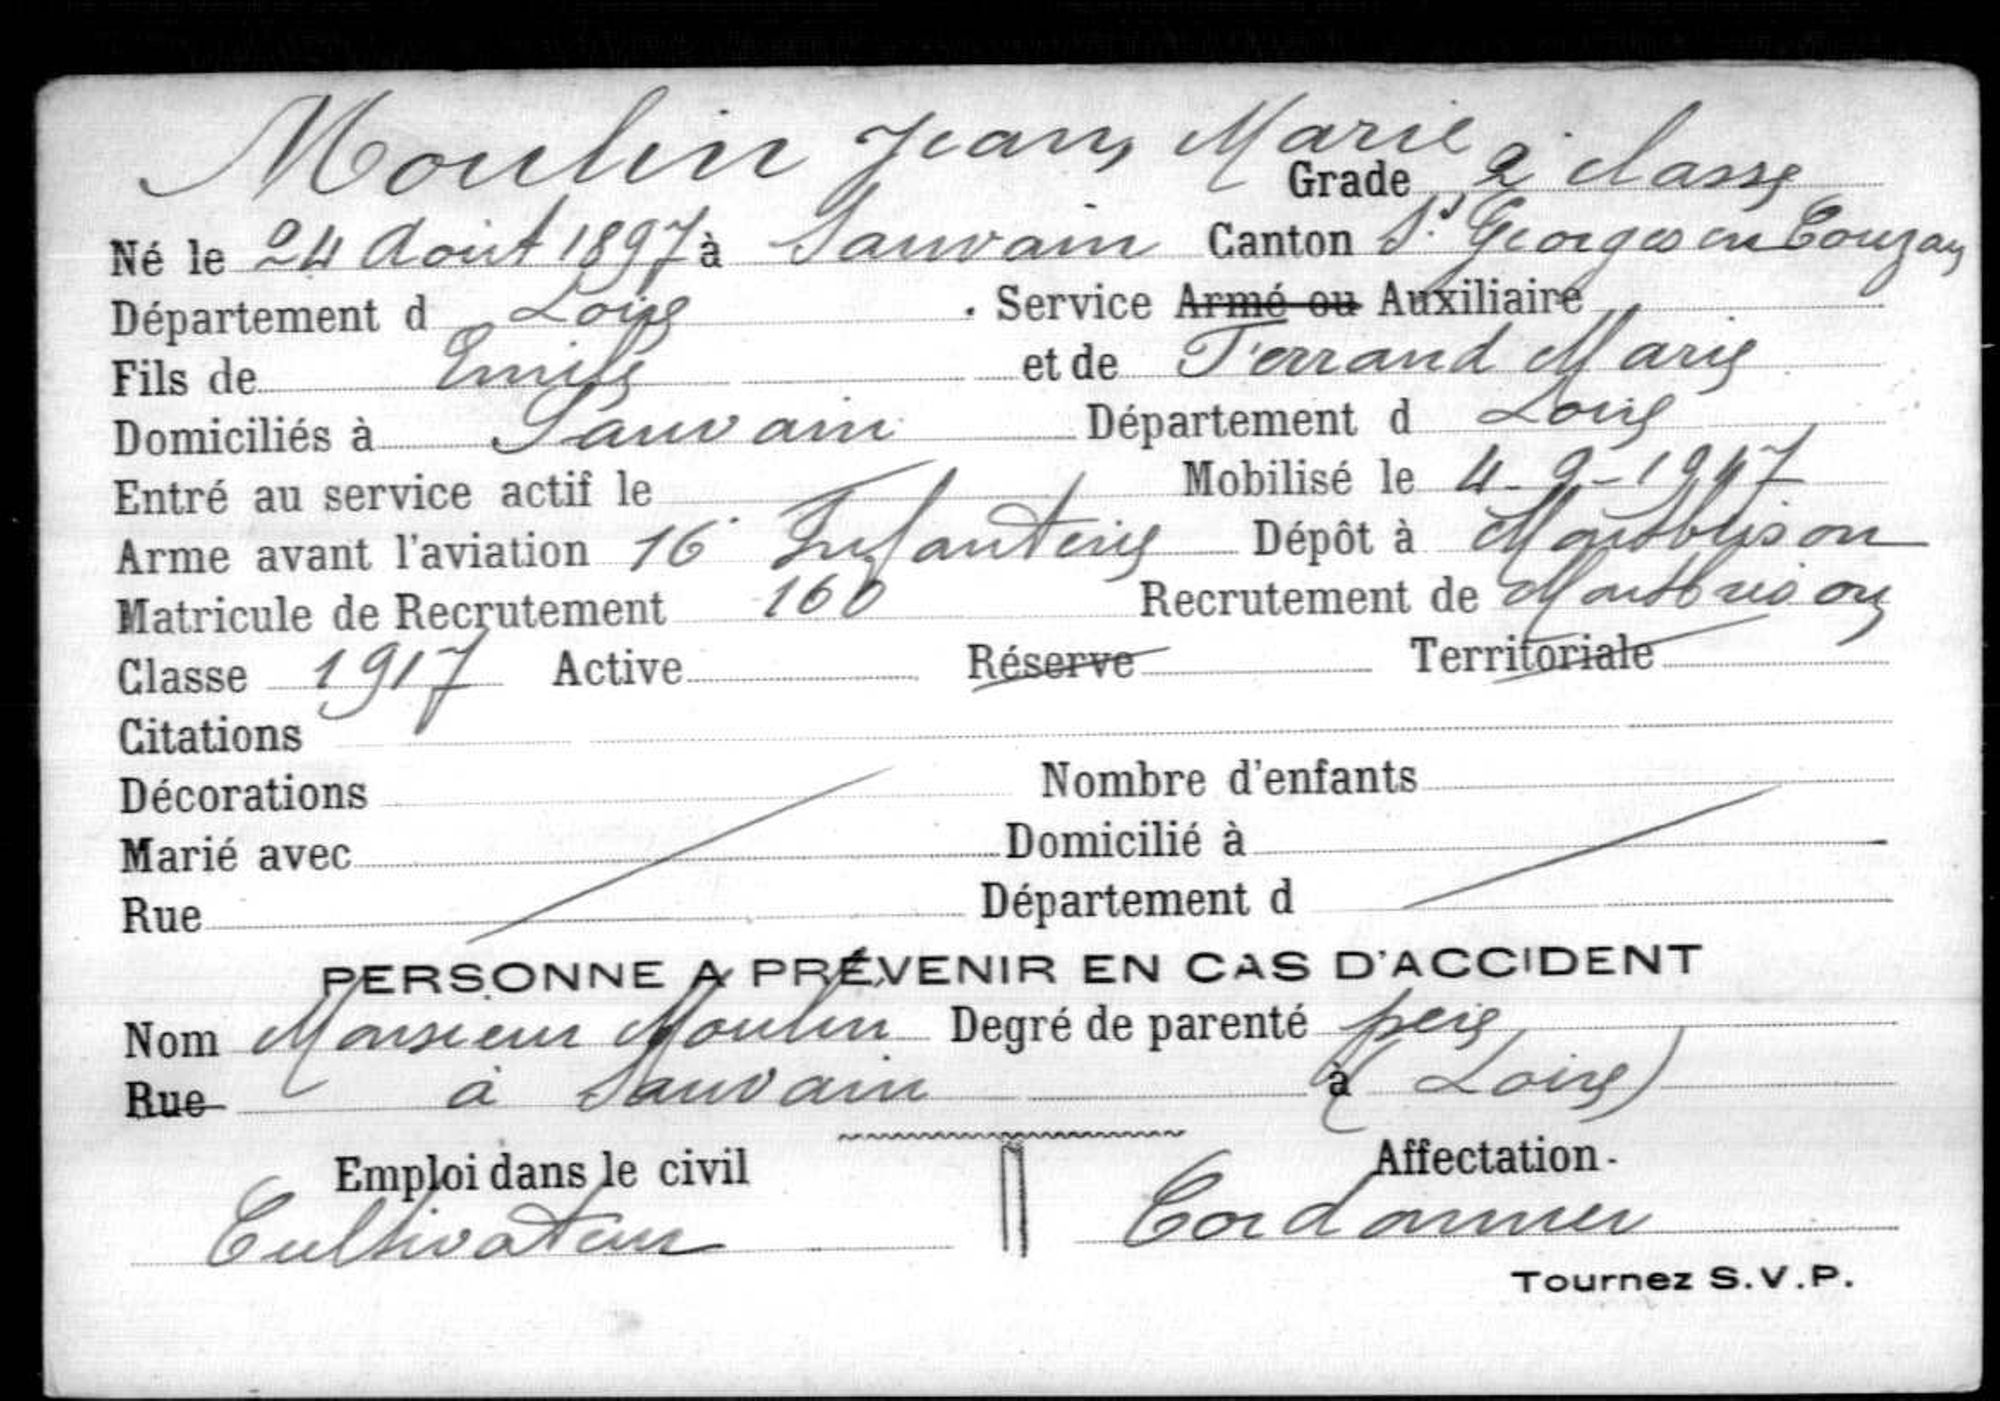 Moulin Jean Marie
Grade 2e classe
Né le 24 Août 1897 à Sauvain Canton St Georges en Couzan
Département d Loire . Service Armé ou Auxiliaire
Fils de Emile et de Ferrand Marie
Domiciliés à Sauvain Département d Loire
Entré au service actif le Mobilisé le 4-9-1917
Arme avant l'aviation 16e Infanterie Dépôt à Montbrison
Matricule de Recrutement 160 Recrutement de Montbrison
Classe 1917 Active Réserve Territoriale
Citations
Décorations Nombre d'enfants
Marié avec Domicilié à
Rue Département d
PERSONNE A PRÉVENIR EN CAS D'ACCIDENT
Nom Monsieur Moulin Degré de parenté père
Rue à Sauvain à (Loire)
Emploi dans le civil Affectation
Cultivateur Cordonnier
Tournez S.V.P.